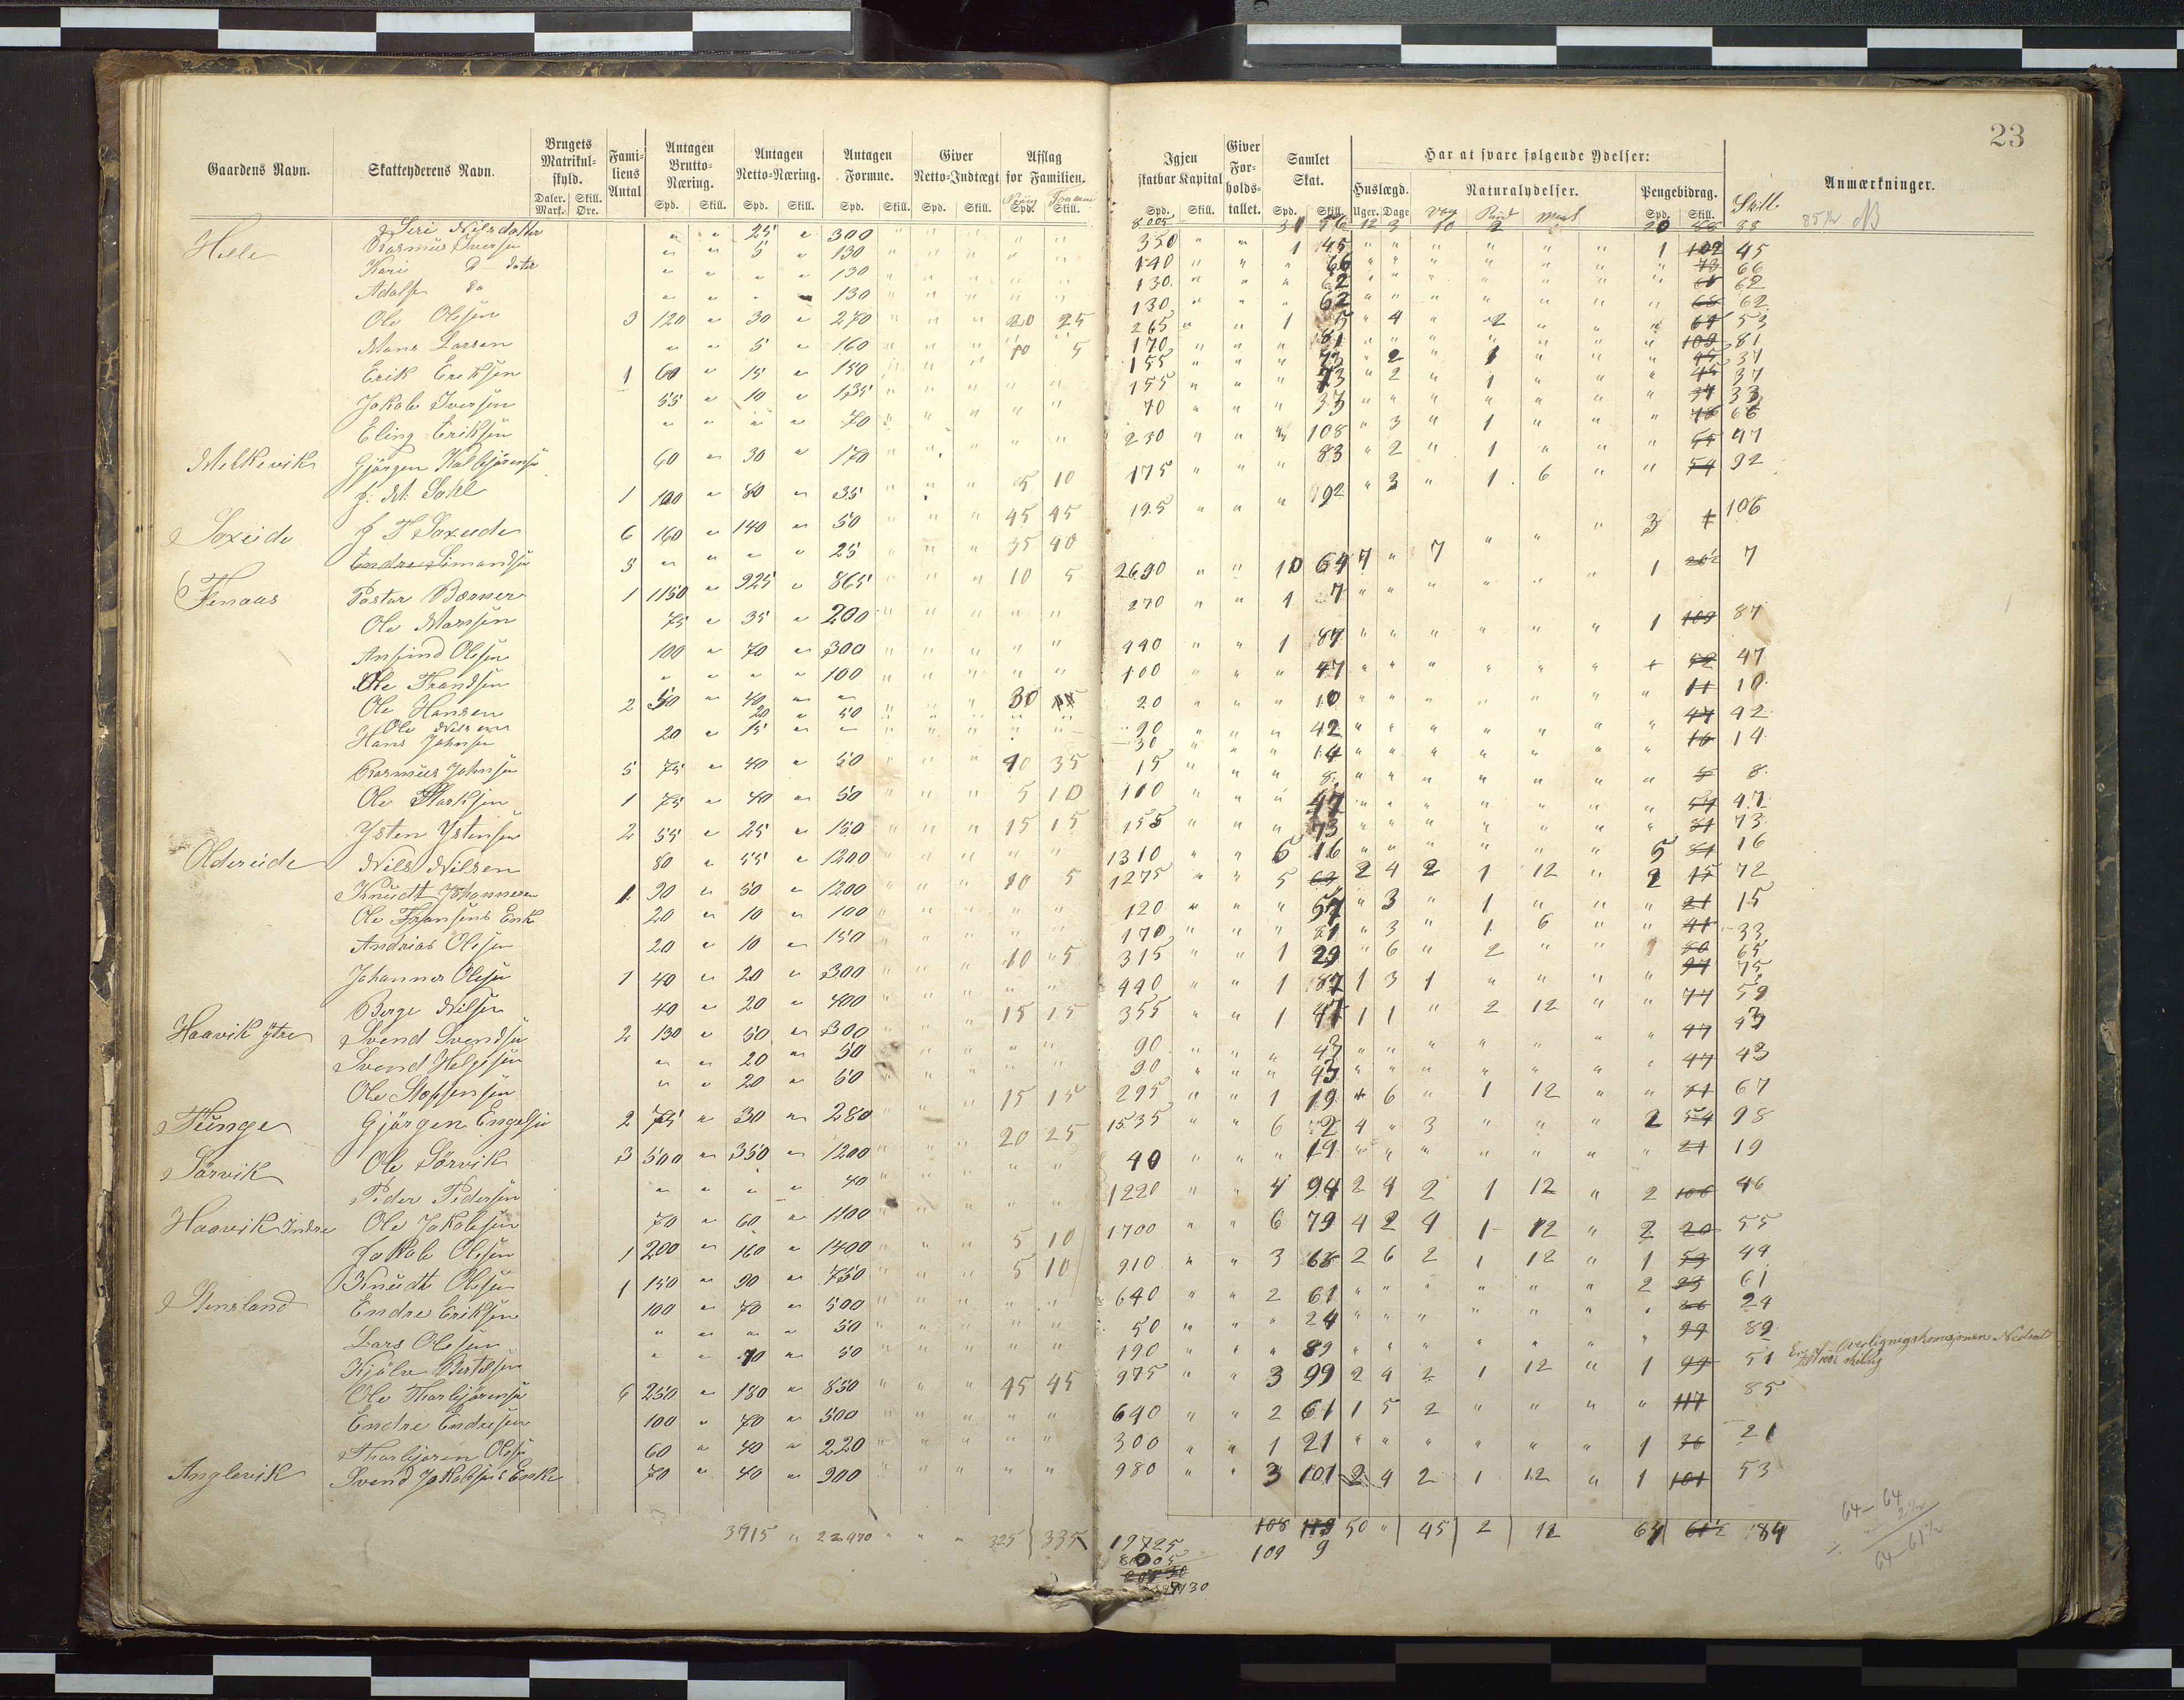 23
Gaardens Navn. Skatteyderens Navn. Brugets Matrikulskyld. Familiens Antal Antagen Brutto-Næring. Antagen Netto-Næring. Antagen Formne. Giver Netto-Indtægt Afslag for Familien. Igjen skatbar Kapital Giver Forholdstallet. Samlet Skat. Har at svare følgende Ydelser: Anmærkninger.
Huslægd. Naturalydelser. Pengebidrag. Skill
Daler. Mark. Skill. Øre. Spd. Skill. Spd. Skill. Spd. Skill. Spd. Skill. Spd. Skill. Spd. Skill. Spd. Skill. Uger. Dage Vog Pund Mark Spd. Skill.
8005 31 56 12 3 10 2 20 88 88
Helle Siri Nilsdatter " " 25 " 300 " " " " " 350 " " 1 45 " " " " " " 1 102 45
Rasmus Iversen " " 5 " 130 140 " " " 66 73 66
Kari D– dater " " " " 130 130 " " " 62 68 62
Adolf do " " " " 130 130 " " " 62 68 62
Ole Olesen 3 120 " 30 " 270 " " " 20 25 265 " " 1 5 " 4 " 2 " " " 64 53
Mons Larsen " " 5 " 160 170 " " " 81 109 81
Erik Eriksen 1 60 " 15 " 150 " " " 10 5 155 " " " 73 " 2 " 1 " " " 45 37
Jakob Iversen 55 " 10 " 135 155 " " " 73 " 2 " 1 " " " 45 37
Eling Eriksen " " " " 70 70 " " " 33 34 33
Melkevik Gjørgen Kolbjørnsen 60 " 30 " 170 230 " " " 108 " 3 " 1 " " " 78 66
J: M: Dahl 1 100 " 80 " 35 " " " 5 10 175 " " " 83 " 2 " 1 " " " 54 47
Soxeide J T Soxeide 6 160 " 140 " 50 " " " 45 45 195 " " " 92 " 3 " 1 6 " " 54 92
Endre Simondsen 5 " " " " 25 " " " 35 40
Finaas Pastor Børner 1 1150 " 925 " 865 " " " 10 5 2690 " " 10 64 7 " 7 " " " 3 1 106
Ole Monsen 75 " 35 " 200 270 " " 1 7 1 20½ 7
Anfind Olesen 100 " 70 " 300 440 " " 1 87 1 109 87
Ole Trandsen " " " " 100 100 " " " 47 52 47
Ole Hansen 2 50 " 40 " " 30 15 20 " " " 10 11 10
Ole Nilsen 20 " 50 90 " " " 42 47 42
Hans Johnsen 20 " 15 " " 30 " " " 14 16 14
Rasmus Johnsen 5 75 " 40 " 50 " " " 40 35 15 " " " 8 8 8
Ole Larsen 1 75 " 40 " 50 " " " 5 10 100 " " " 47 54 47
Ysten Ystensen 2 55 " 25 " 150 " " " 15 15 155 " " " 73 81 73
Oldereide Nils Nilsen 80 " 55 " 1200 1310 " " 5 16 5 81 16
Knudt Johannesen 1 90 " 50 " 1200 " " " 10 5 1275 " " 5 63 2 4 2 1 12 " 2 15 72
Ole Hansens Enke 20 " 10 " 100 120 " " " 57 " 3 " 1 " " " 21 15
Andrias Olesen 20 " 10 " 150 170 " " " 81 " 3 " 1 6 " " 41 33
Johannes Olesen 1 40 " 20 " 300 " " " 10 5 315 " " 1 29 " 6 " 2 " " " 80 65
Børge Nilsen 40 " 20 " 400 440 " " 1 87 1 3 1 " " " " 97 75
Haavik ytre Svend Svendsen 2 130 " 50 " 300 " " " 15 15 355 " " 1 47 1 1 " 2 12 " " 77 59
Svend Helgesen " " 20 " 50 90 " " " 43 47 43
Ole Steffensen " " 20 " 50 90 " " " 43 47 43
Tunge Gjørgen Engelsen 2 75 " 30 " 280 " " " 15 15 295 " " 1 19 " 6 " 1 12 " " 71 67
Sørvik Ole Sørvik 3 500 " 350 " 1200 " " " 20 25 1535 " " 6 2 4 " 3 " " " 2 54 98
Peder Pedersen " " " " 40 40 " " " 19 21 19
Haavik Indre Ole Jakobsen 70 " 60 " 1100 1220 " " 4 94 2 4 2 1 12 " 2 106 46
Jakob Olesen 1 200 " 160 " 1400 " " " 5 10 1700 " " 6 79 4 2 4 1 12 " 2 20 55
Knudt Olesen 1 150 " 90 " 750 " " " 5 10 910 " " 3 68 2 6 2 1 12 " 1 53 44
Stensland Endre Eriksen 100 " 70 " 500 640 " " 2 61 2 23 61
Lars Olesen " " " " 50 50 " " " 24 26 24
Kjølv Bertelsen " " 70 " 50 190 " " " 89 99 89 Er af Overligningskomisjonen Nedsat
Ole Thorbjørnsen 6 250 " 180 " 850 " " " 45 45 975 " " 3 99 2 4 2 1 12 " 1 99 51
Endre Endresen 100 " 70 " 500 640 " " 2 61 1 5 2 " " " " 117 85
Thorbjørn Olesen 60 " 40 " 220 300 " " 1 21 " " " " " " 1 36 21
Anglevik Svend Jakobsens Enke 70 " 40 " 900 980 " " 3 101 2 4 2 1 12 " 1 101 53
3715 " 22970 " " " 325 335 19725 108 119 50 " 45 2 12 64 61½ 84
8005 109 9
64 – 64
64 – 65½